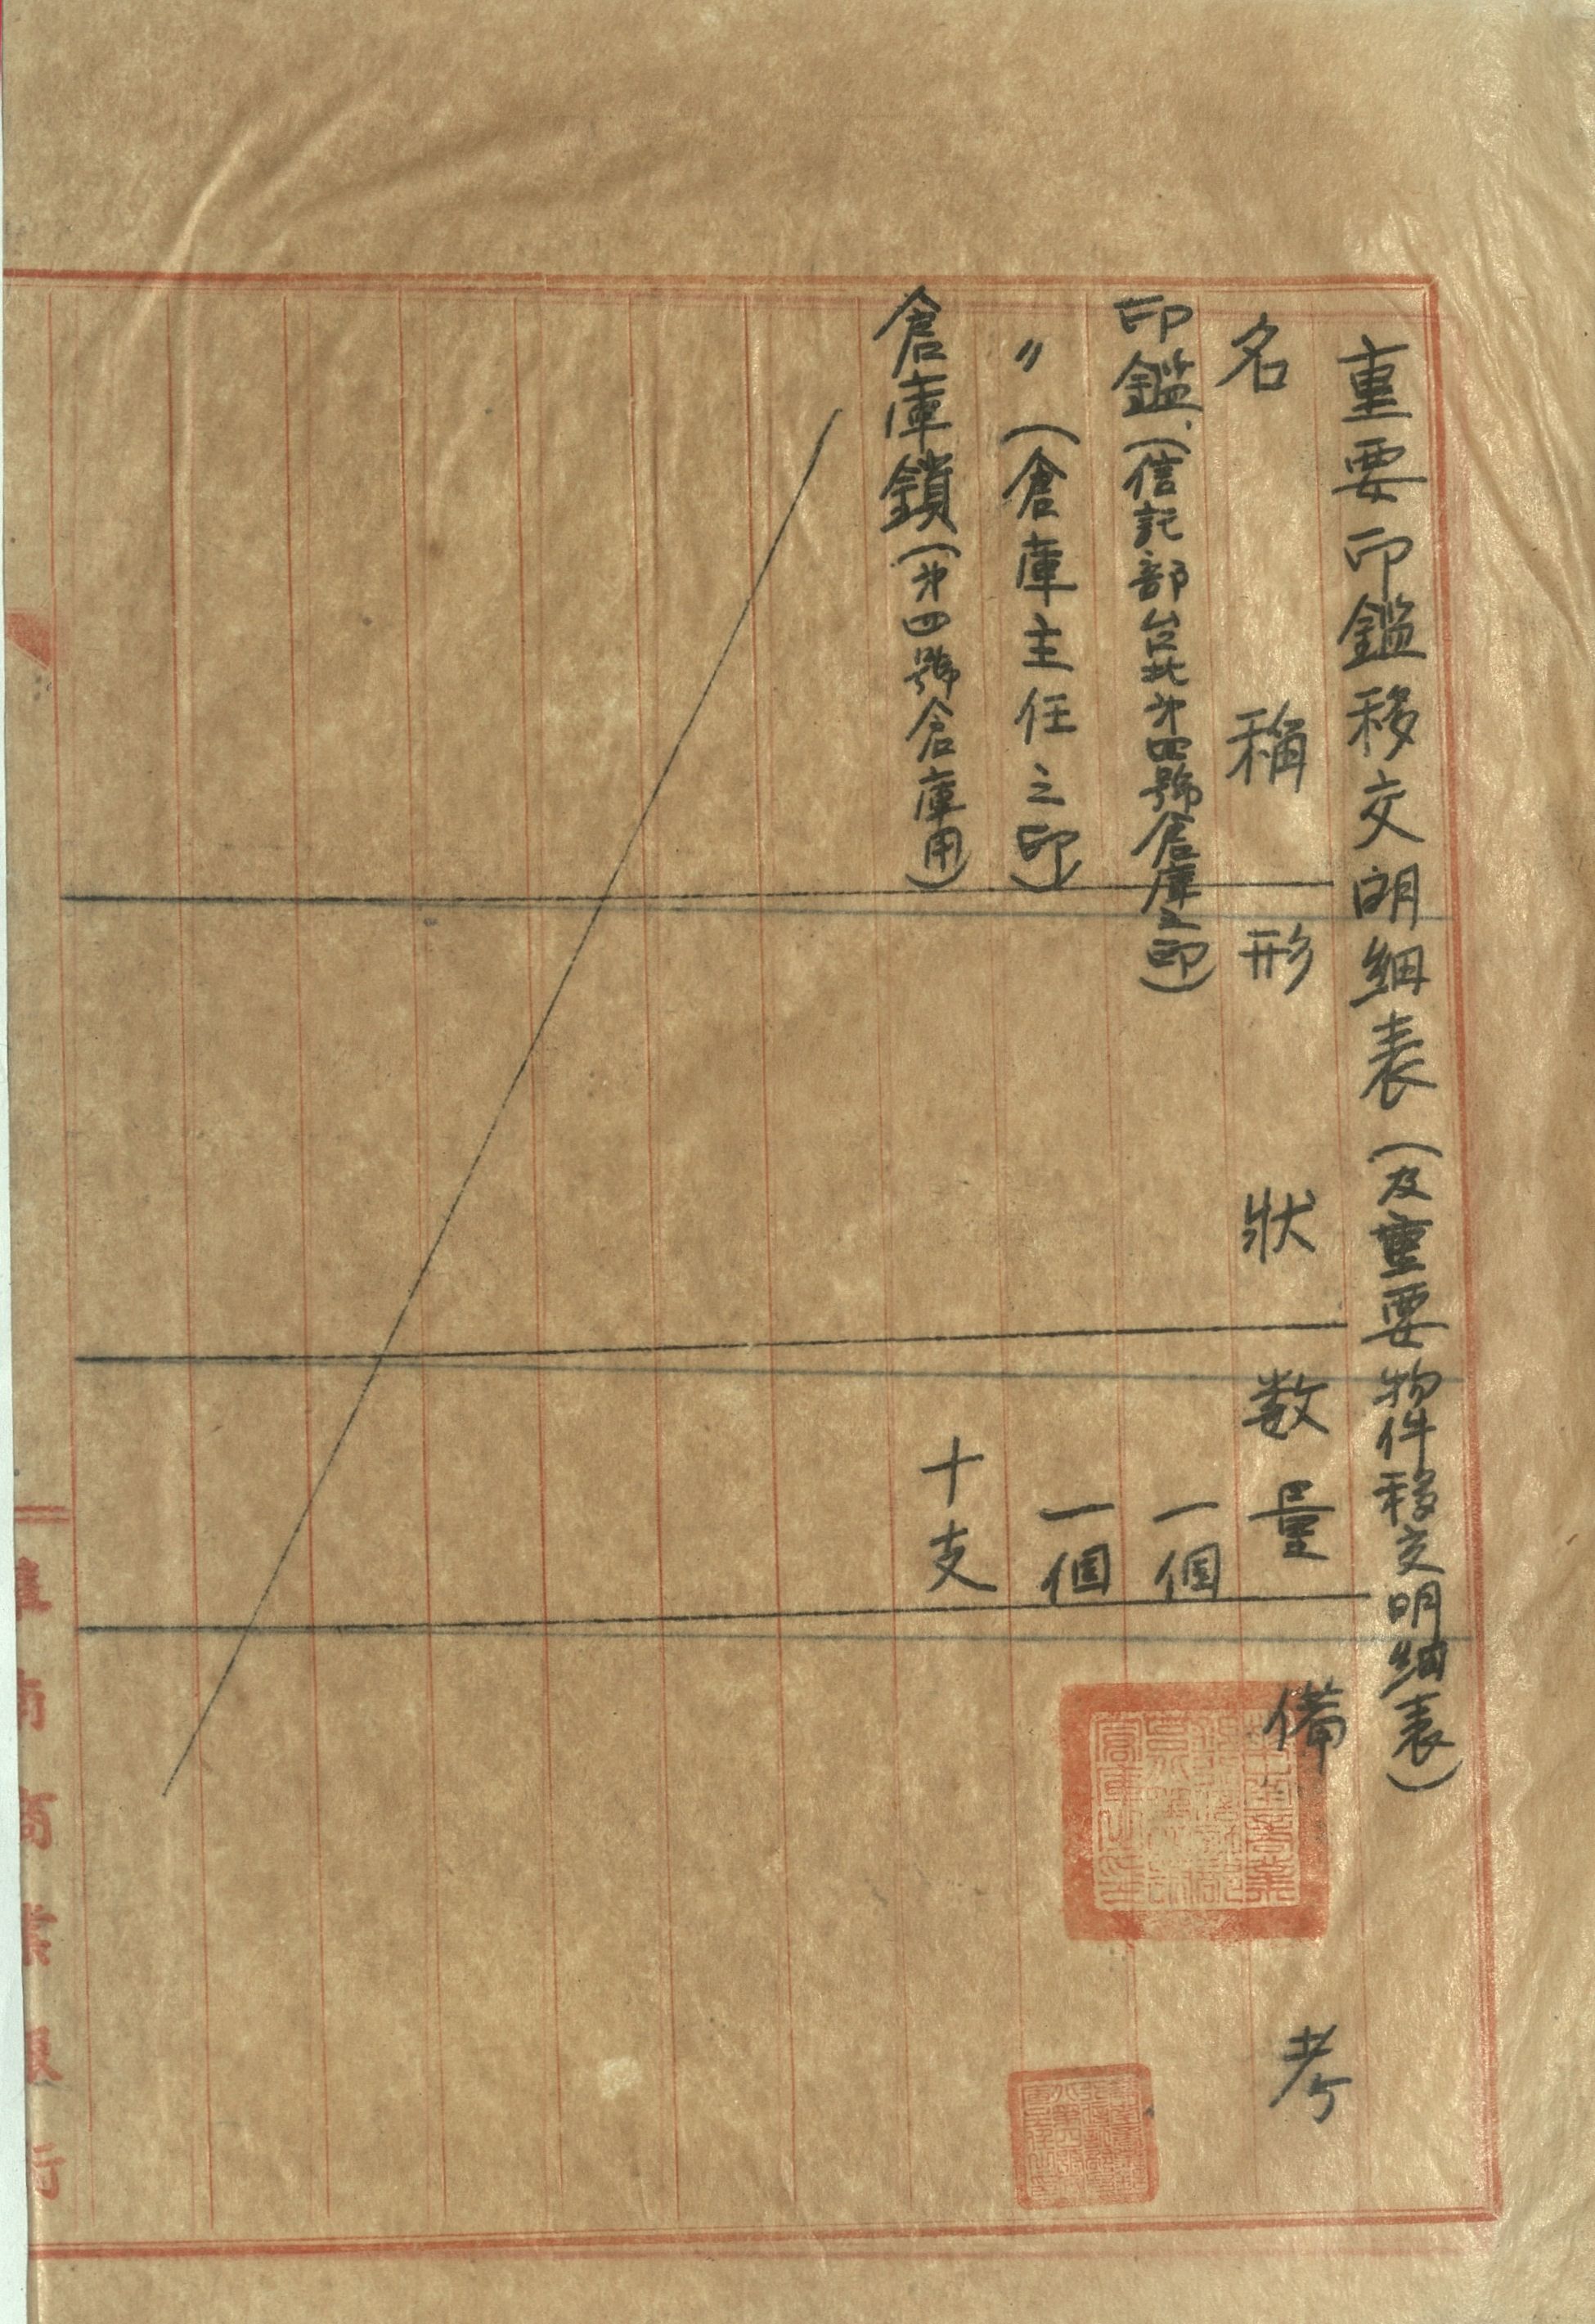 重要印鑑移交明細表(及重要物件移交明細表)
名稱 形狀 数量 備考
印鑑(信託部台北㐧四號倉庫之印) 一個
〃(倉庫主任之印) 一個
倉庫鎖(㐧四號倉庫用) 十支
華南商業銀行